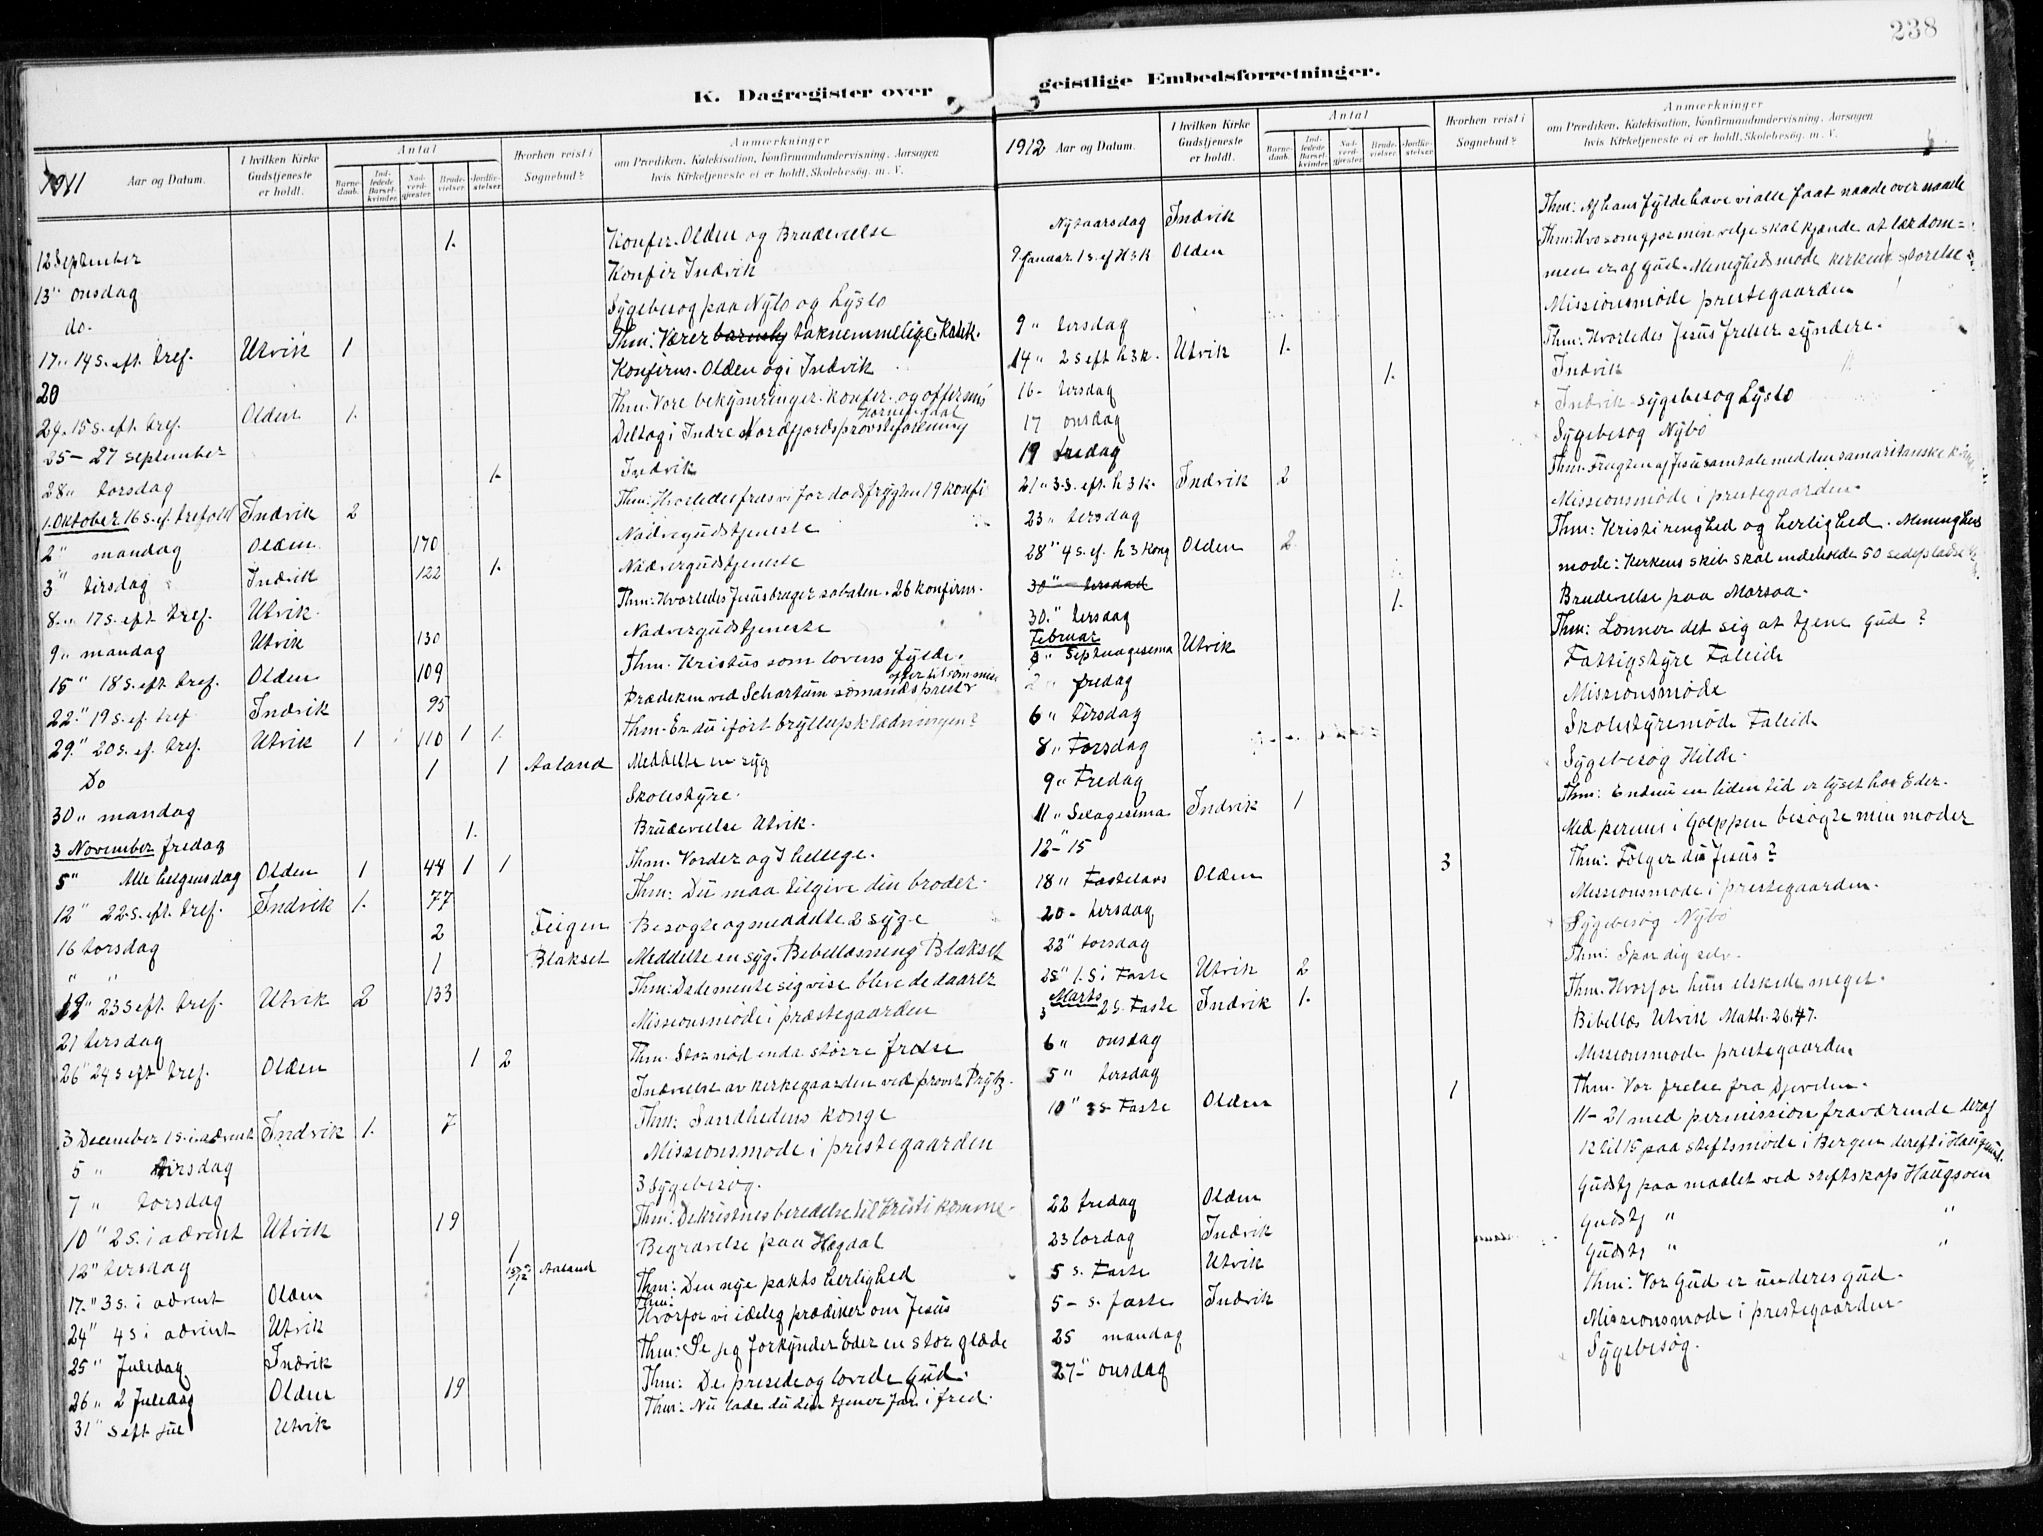 238
K. Dagregister over
geistlige Embedsforretninger.
1911
Aar og Datum.
I hvilken Kirke Gudstjeneste er holdt.
Antal
Barne-daab.
Ind-ledede Barsel-kvinder.
Nad-verd-gjester.
Brude-vielser.
Jordfæ-stelser.
Hvorhen reist i Sognebud?
Anmærkninger
om Prædiken, Katekisation, Konfirmandundervisning, Aarsagen
hvis Kirketjeneste ei er holdt, Skolebesøg, m. V.
12 September 1. Konfir. Olden og Brudevielse
13" onsdag Konfir Indvik
do. Sygebesøg paa Nybø og Lyslo
17" 14 s. eft. tref. Utvik 1 Thm: Værer barnsly taknemmelige. Katek.
20 Konfirm. Olden og i Indvik
24. 15 s. eft. tref. Olden 1. Thm: Vore bekymringer. Konfir. og
Hornindal
25 – 27 September Deltog i Indre Nordfjords provstefo
28" torsdag 1. Indvik
1. Oktober 16 s. ef. trefold Indvik 2 Thm: Hvorledes fries vi for dødsfrygten 19 konfi
2" mandag Olden 170 Nadvergudstjeneste
3" tirsdag Indvik 122 1. Nadvergudstjeneste
8" 17 s. eft tref. Utvik. Thm: Hvorledes Jesus bruger sabaten. 26 konfirm.
9" mandag Utvik 130 Nadvergudstjeneste
15" 18 s. eft. tref. Olden 109 Thm. Kristus som lovens fylde.
22" 19 s. ef. tref Indvik 95 Prædiken ved Schartum sømandsprest
29" 20 s. ef. tref. Utvik 1 110 1 1. Thm. Er du iført bryllupsklædningen?
Do 1 1 Aaland Meddelte en syg
30" mandag Skolestyre.
3 November fredag 1. Brudevielse Utvik.
5" Alle helgensdag Olden 1 44 1 1 Thm. Vorder og I hellige.
12" 22 s. eft. tref. Indvik 1. 77 Thm: Du maa tilgive din broder.
16 torsdag 2 Feigen Besøgte og meddelte 2 syge
" " 1 Blakset Meddelte en syg. Bibellæsning Blakset
19" 23 s eft. tref. Utvik 2 133 Thm: Da de mente sig vise bleve de daarer
21 tirsdag Missionsmøde i præstegaarden
26" 24 s eft tref. Olden 1 2 Thm. Stor nød enda større frelse
Indvielse av kirkegaarden ved provst
3 December 1 s. i advent Indvik 1. 7 Thm: Sandhedens konge
5" tirsdag Missionsmøde i prestegaarden
7" torsdag 3 Sygebesøg.
10" 2 s. i advent Utvik 19 Thm: De kristnes beredelse til Kristi komme.
12" tirsdag 1 Aaland Begravelse paa Hægdal
17." 3 s. i advent Olden Thm: Den nye pakts herlighed
24" 4 s i advent Utvik Thm: Hvorfor vi idelig prædiker om Jesus
25" Juledag Indvik Thm: Se jeg forkynder Eder en stor glæde
26" 2 Juledag Olden 19 Thm: De prisede og lovede Gud.
31" s eft jul Utvik Thm: Nu lade du din tjener fare i fred.
1912
Aar og Datum.
I hvilken Kirke Gudstjeneste er holdt.
Antal
Barne-daab.
Ind-ledede Barsel-kvinder.
Nad-verd-gjester.
Brude-vielser.
Jordfæ-stelser.
Hvorhen reist i Sognebud?
Anmærkninger
om Prædiken, Katekisation, Konfirmandundervisning, Aarsagen
hvis Kirketjeneste ei er holdt, Skolebesøg, m. V.
Nytaarsdag Indvik Thm: Af hans fylde have vi alle faat naade over naade
7 Januar 1 s. ef H3K Olden Thm: Hvo som gjør min vilje skal kjende at lærdom=
men er af Gud. Menighedsmøde kirkens størelse
9" tirsdag Missionsmøde prestegaarden
14" 2 s eft h3k. Utvik 1. Thm: Hvorledes Jesus frelser syndere.
16 - tirsdag 1. Indvik
17 onsdag Indvik sygebesøg Lyslo
19 fredag Sygebesøg Nybø
21" 3. s. eft. h3k. Indvik 2 Thm. Frugten af Jesu samtale med den samaritanske
23" tirsdag Missionsmøde i prestegaarden.
28" 4 s. ef. h 3 Kong Olden 2 Thm: Kristi renghed og herlighed. Menigheds
30" tirsdad møde: Kirkens skib skal indeholde 50 sedepladse
30." tirsdag 1. Brudevielse paa Marsaa.
Februar
" Septuagesema Utvik Thm: Lønner det sig at tjene Gud?
2" fredag Fattigstyre Faleide
6" tirsdag Missionsmøde
8" Torsdag Skolestyremøde Faleid
9" Fredag Sygebesøg Hilde.
11" Selagesema Indvik 1 Thm: Endnu en liden tid er lyset hos Eder.
12 – 15 Med permis i besøgte min moder
18" Fastelavs Olden 3 Thm: Følger du Jesus?
20 - tirsdag Missionsmøde i prestegaarden.
22" torsdag Sygebesøg Nybø
25" 1. S i Faste Utvik 2 Thm: Spar dig selv.
Marts
3 2 s. Faste Indvik 1. Thm. Hvorfor hun elskede meget.
6" onsdag Bibellæs Utvik Math. 26.47.
5" tirsdag Missionsmøde prestegaarden
10" 3 s Faste Olden 1 Thm. Vor frelse fra Djevelen.
11 – 21 med permission fraværende deraf
12 til 15 paa stiftsmøde i Bergen dereft i Haugesund.
22 fredag Olden Gudstj paa maalet ved stiftskap Haugsvoin
23 lørdag Indvik Gudstj " "
5 s. Faste Utvik Gudstj " "
5 – s. faste Indvik Thm: Vor Gud er underes gud.
25 mandag Missionsmøde i prestegaarden
27 – onsdag Sygebesøg.